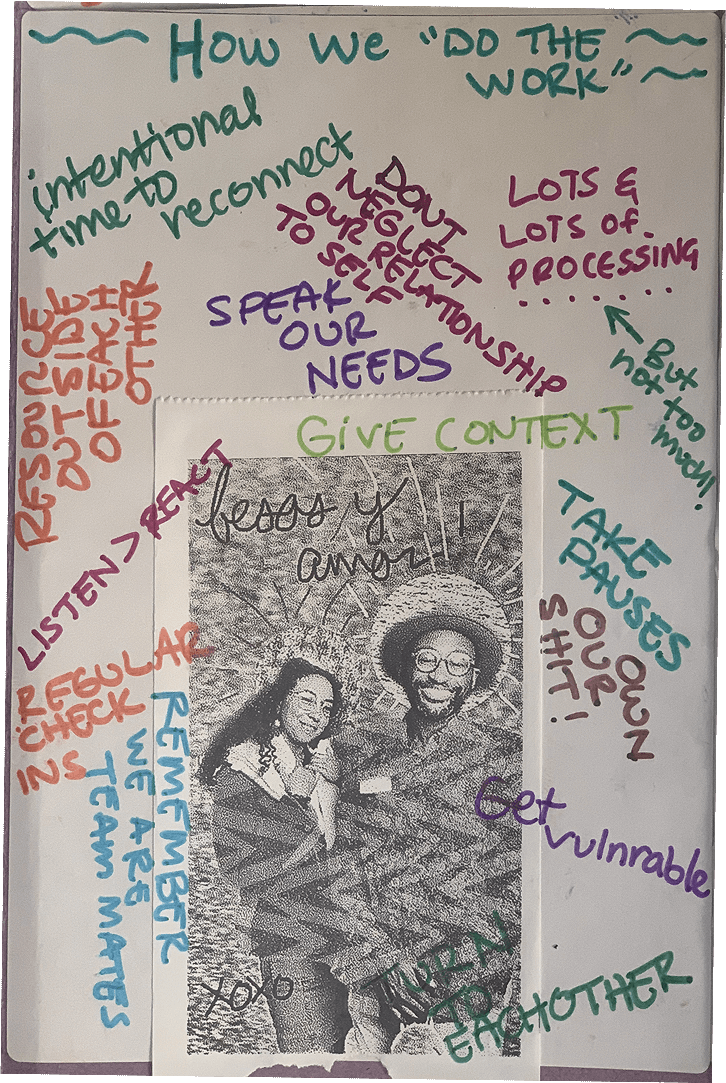 HOW WE "DO THE
WORK"
intentional
time to
reconnect
DONT
NEGLECT
OUR RELATIONSHIP
TO SELF
LOTS &
LOTS OF
PROCESSING
........
But
not too
much!
RESOURCE
OUTSIDE
OF EACH
OTHER
SPEAK
OUR
NEEDS
GIVE CONTEXT
LISTEN > REACT
besos y
amor!
TAKE
PAUSES
OWN
OUR
SHIT!
REGULAR
CHECK
INS
REMEMBER
WE ARE
TEAM MATES
Get
vulnrable
XOXO
TURN
TO
EACHOTHER